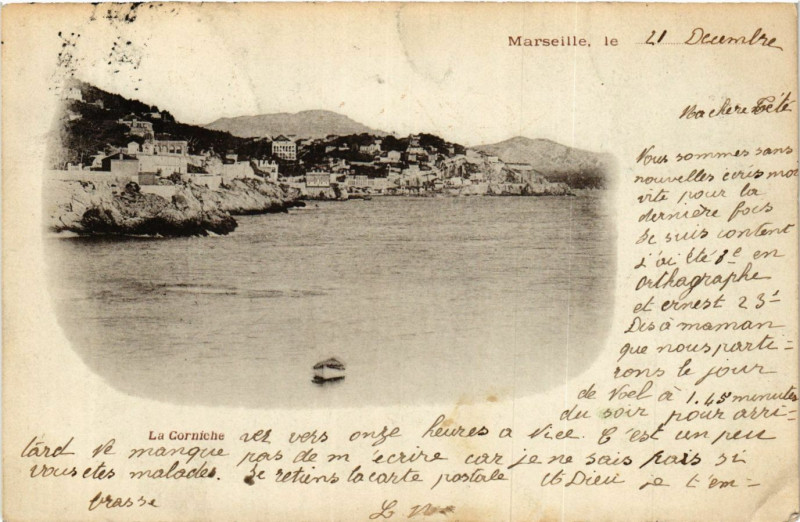 Marseille, le 21 Decembre
Ma chere Bébé
Vous sommes sans
nouvelles écris moi
vite pour la
dernière fois
Je suis content
j'ai été 8e en
Orthagraphe
et ernest 23t
Dis à maman
que nous parti=
rons le jour
de Noel à 1.45 minutes
du soir pour arri-
La Corniche
vez vers onze heures a Nice. C'est un peu
tard Ne manque pas de m'écrire car je ne sais pais si
vous etes malades. Je retiens la carte postale Dieu je t'em-
brasse